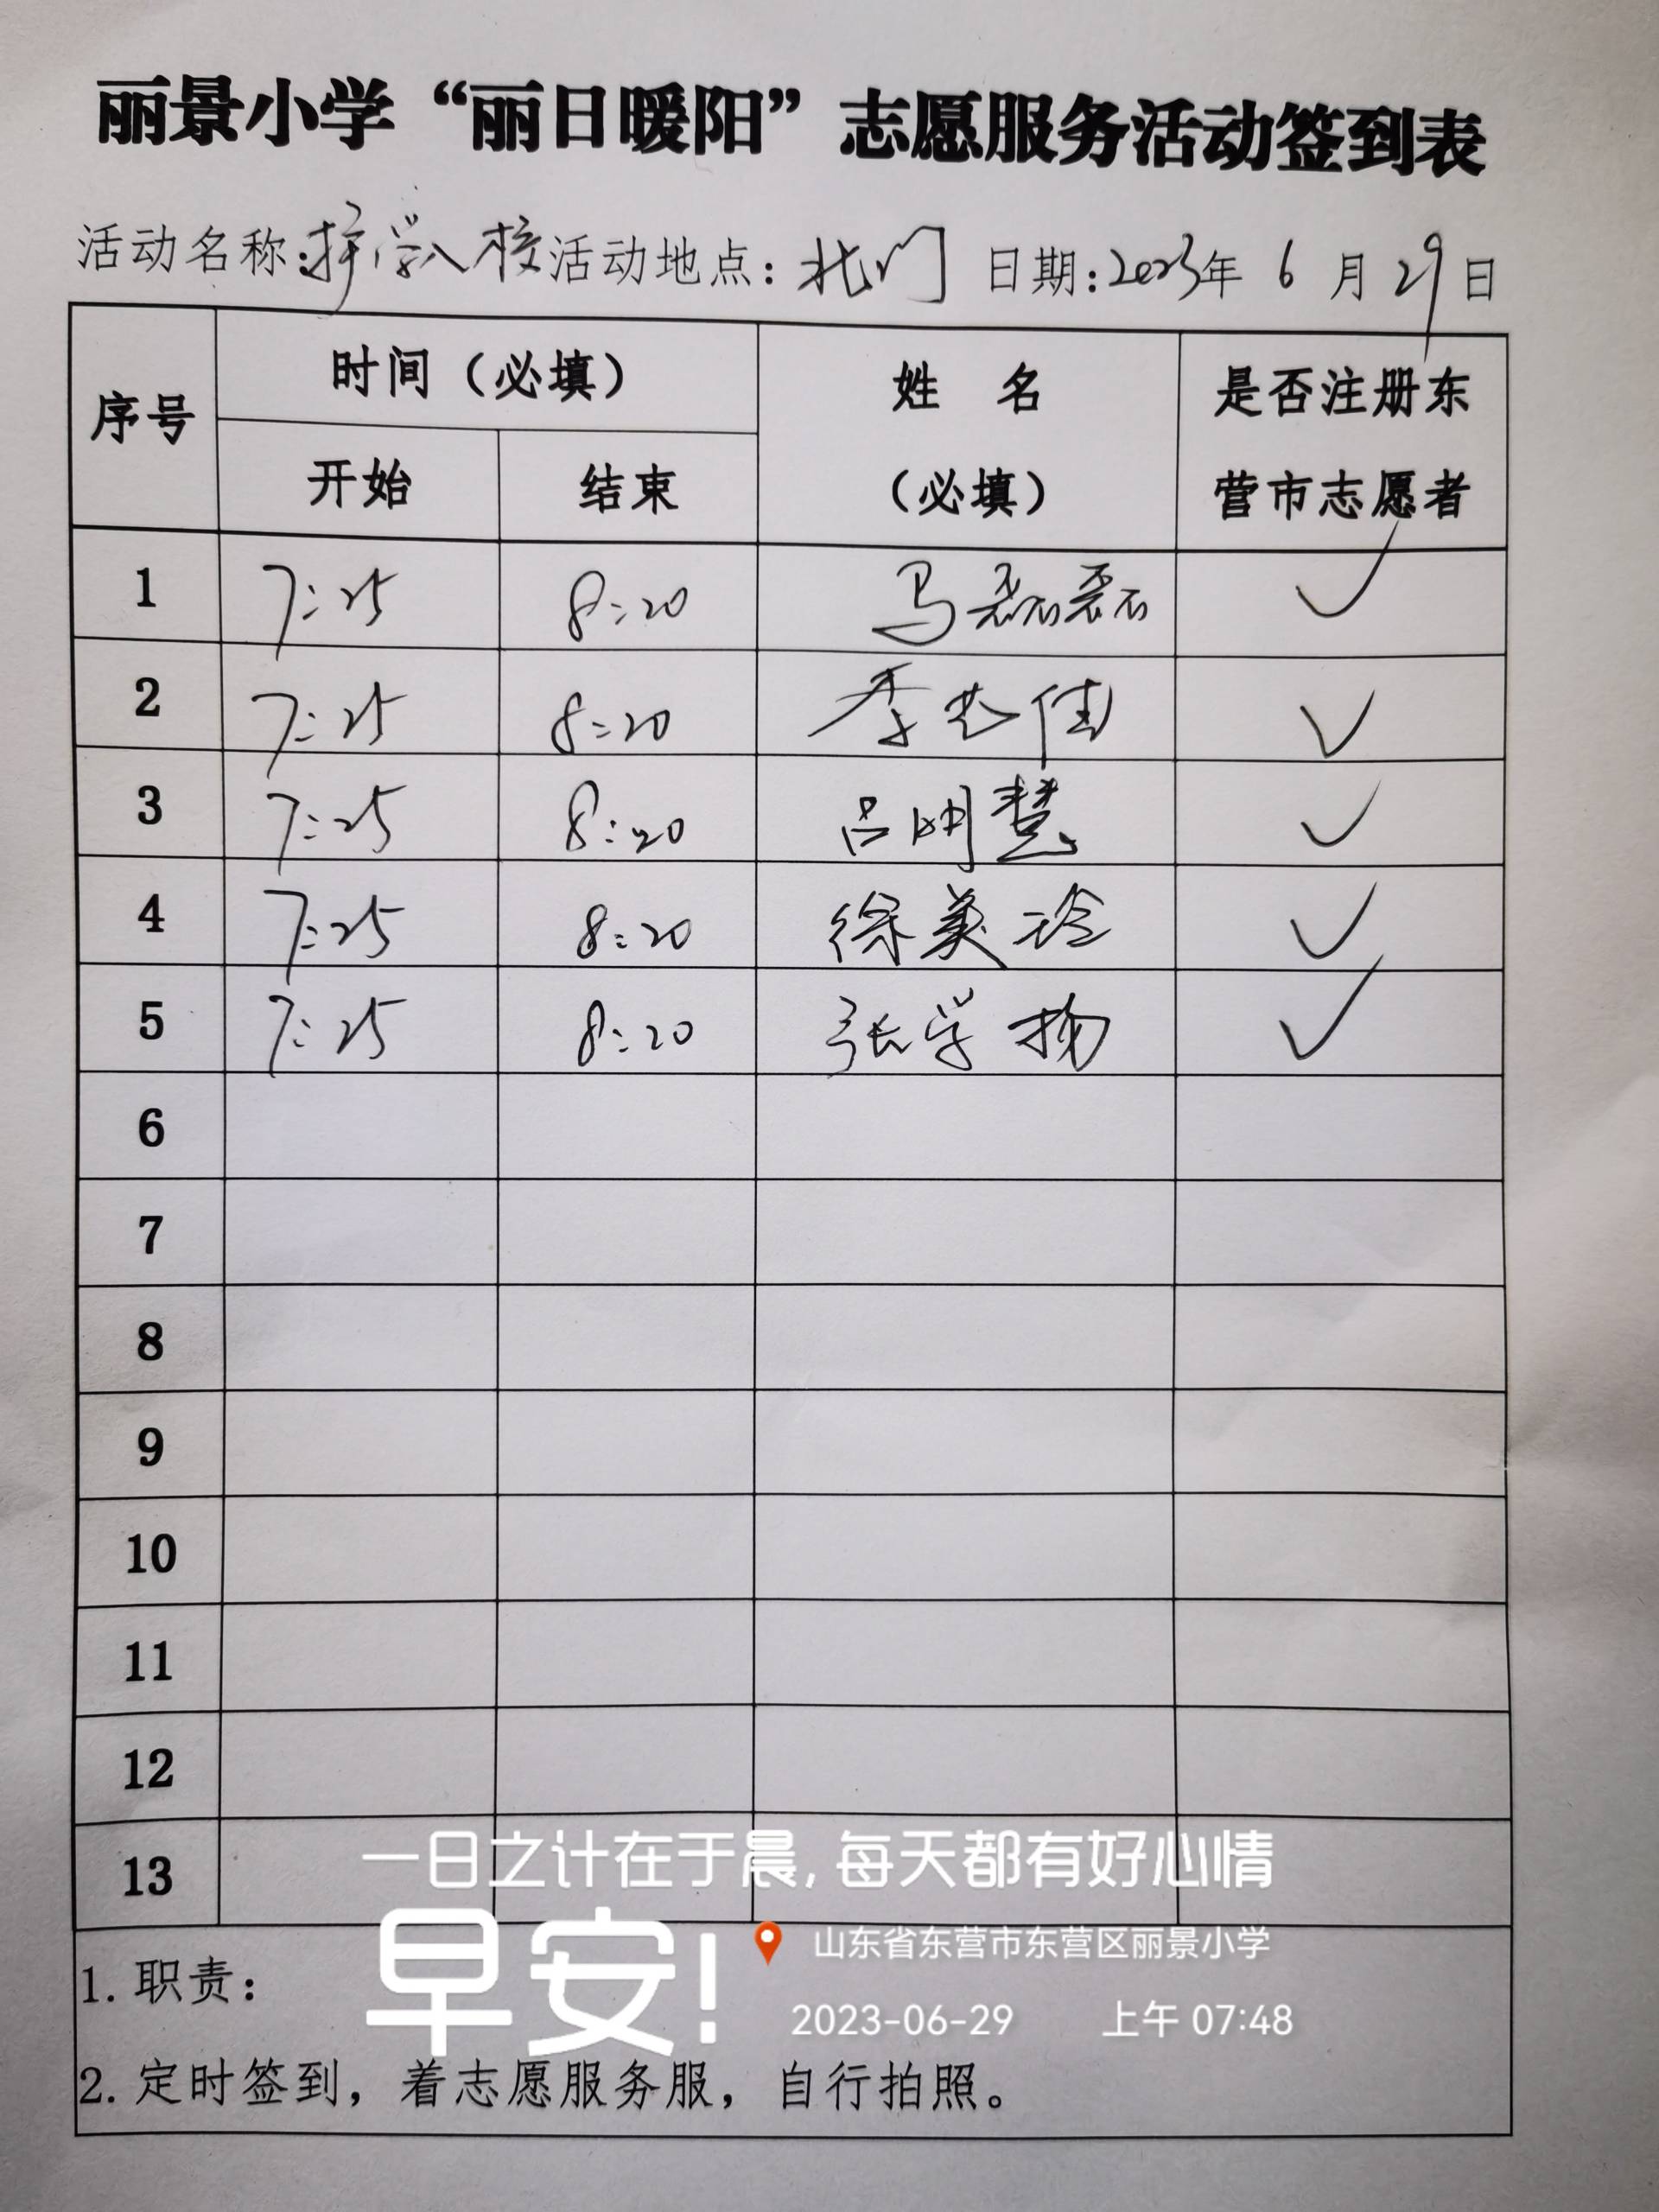 丽景小学“丽日暖阳”志愿服务活动签到表
活动名称:护学入校 活动地点:北门 日期:2023年 6 月 29 日
序号 时间（必填） 姓 名 是否注册东
开始 结束 （必填） 营市志愿者
1 7:25 8:20 马磊磊 ✓
2 7:25 8:20 李志佳 ✓
3 7:25 8:20 吕明慧 ✓
4 7:25 8:20 徐美玲 ✓
5 7:25 8:20 张学扬 ✓
6
7
8
9
10
11
12
13
一日之计在于晨,每天都有好心情
早安!
山东省东营市东营区丽景小学
2023-06-29 上午 07:48
1. 职责:
2. 定时签到，着志愿服务服，自行拍照。